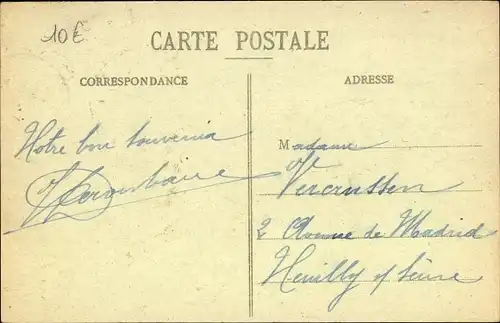 10€
CARTE POSTALE
CORRESPONDANCE
ADRESSE
Notre bon souvenir
Madame
Vve
Vercrussen
2 Avenue de Madrid
Neuilly s/ Seine